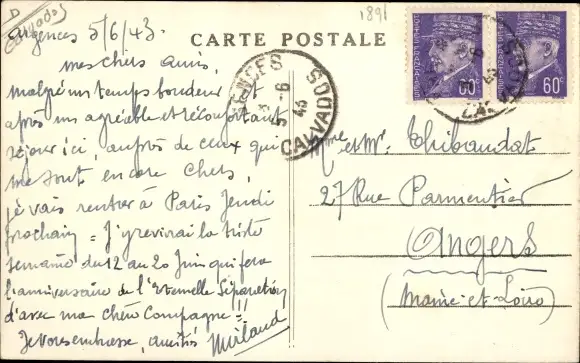 D
Calvados
1891
CARTE POSTALE
Argences 5/6/43.
mes chers amis,
malgré un temps boudeur et
après un agréable et réconfortant
séjour ici, auprès de ceux qui
me sont encore chers,
je vais rentrer à Paris Jeudi
prochain = J'y revivrai la triste
semaine du 12 au 20 Juin qui fera
l'anniversaire de l'Eternelle Séparation
d'avec ma chère Compagne!!
Je vous embrasse, amitiés
ARGENCES
5-6
43
CALVADOS
60c
60c
Mme et Mr. Thibaudat
27 Rue Parmentier
Angers
(Maine-et-Loire)